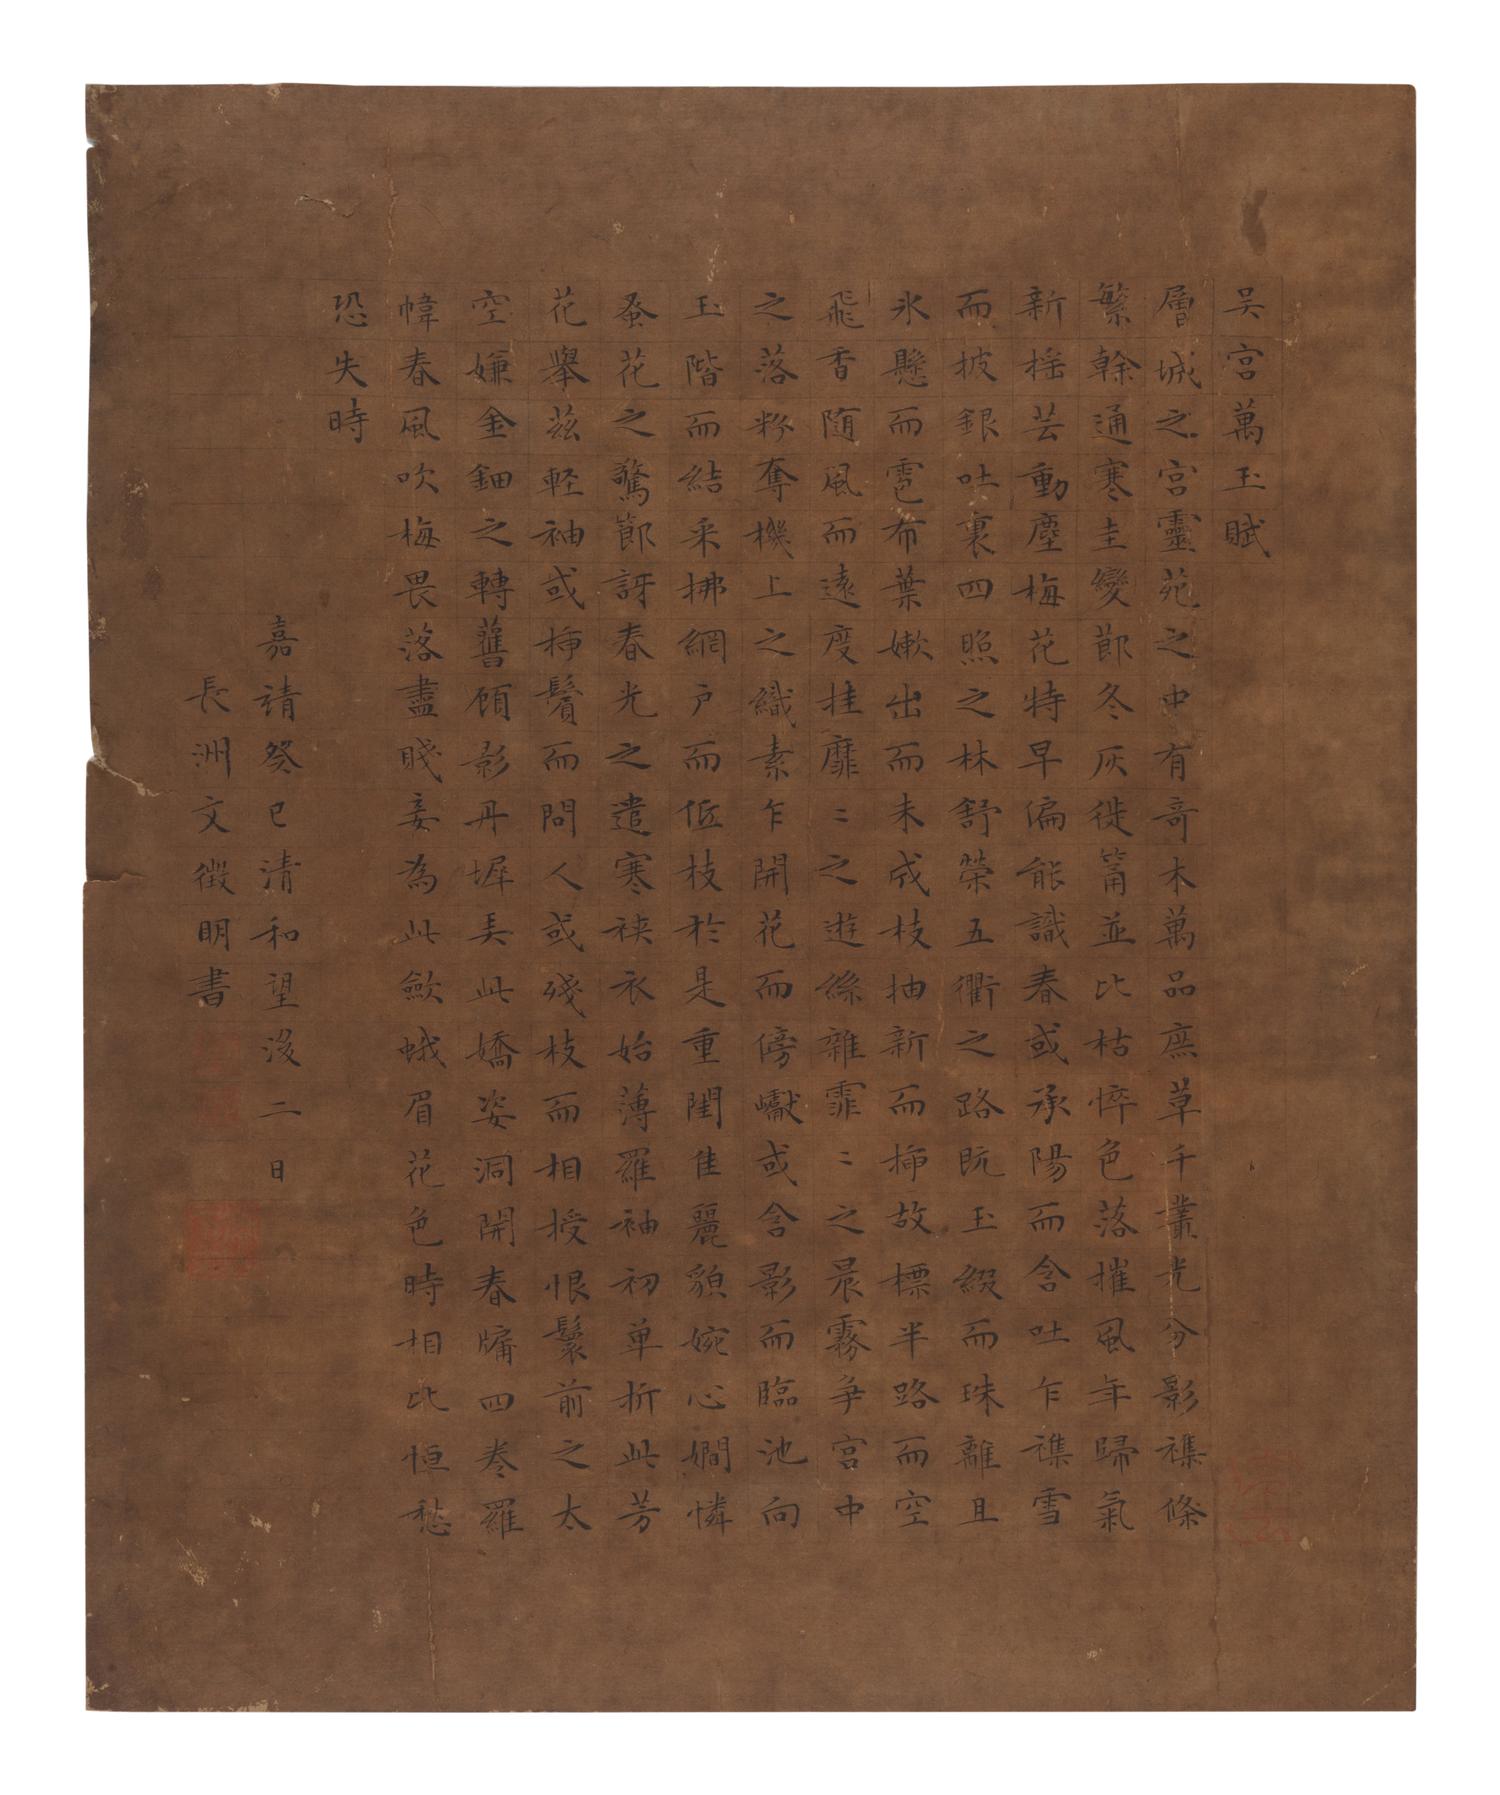 吴宫萬玉賦
層城之宫靈苑之中有奇木萬品庶草千叢光分影襍條
繁幹通寒圭變節冬灰徙筩並比枯悴色落摧風年歸氣
新揺芸動塵梅花特早偏能識春或承陽而含吐乍襍雪
而披銀吐裏四照之林舒榮五衢之路既玉綴而珠離且
氷懸而雹布葉嫰出而未成枝抽新而揷故標半路而空
飛香随風而遠度挂靡〻之遊絲雜霏〻之晨霧争宫中
之落粉奪機上之織素乍開花而傍巘或含影而臨池向
玉階而結采拂網户而低枝於是重閨佳麗貌婉心嫺憐
蚤花之驚節訝春光之遣寒袂衣始薄羅袖初单折此芳
花舉茲軽袖或揷鬢而問人或殘枝而相授恨鬟前之太
空嫌金鈿之轉舊顧影丹墀美此嬌姿洞開春牖四卷羅
幃春風吹梅畏落盡賤妾為此歛蛾眉花色時相比恒愁
恐失時
嘉靖癸巳清和望後二日
長洲文徴明書